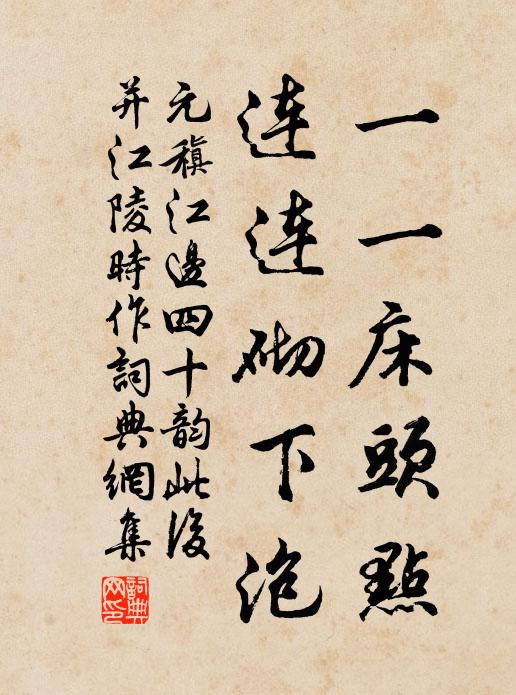 一一床頭點
連連砌下泡
元稹江邊四十韵此後
并江陵時作詞典網集
詞典網印